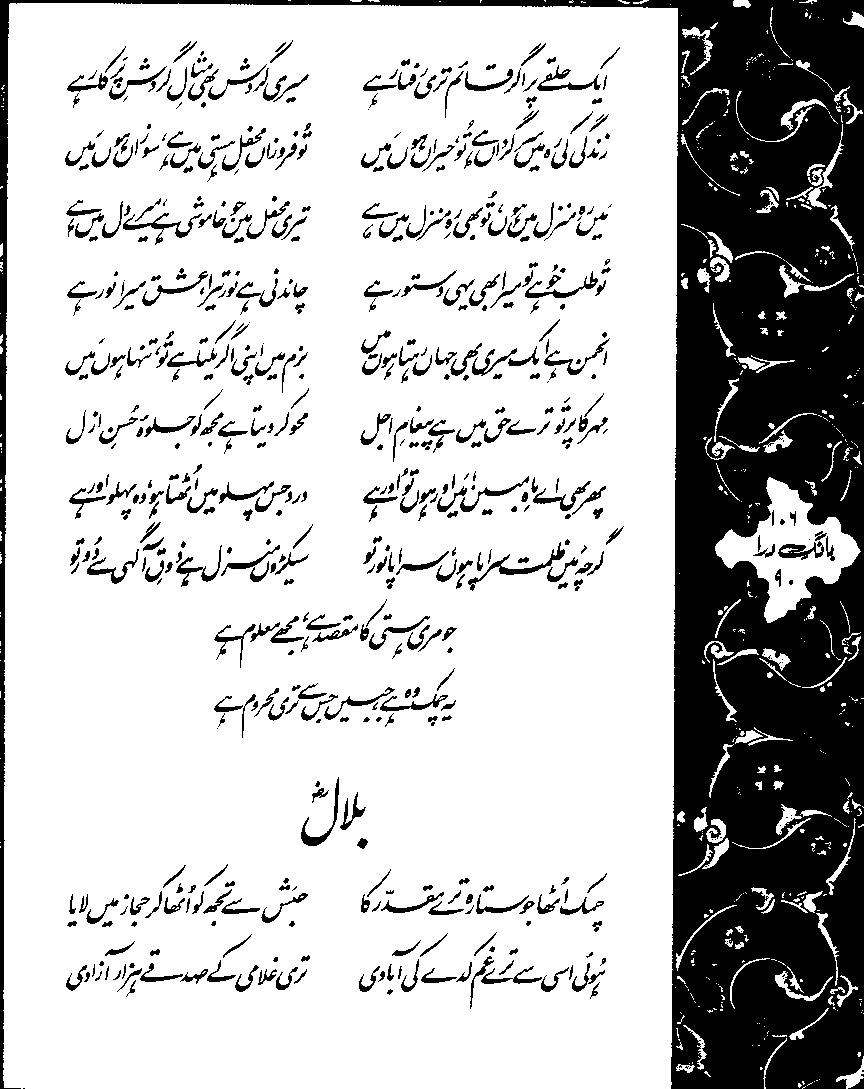 ایک حلقے پر اگر قائم تری رفتار ہے میری گردش بھی مثالِ گردشِ پرکار ہے
زندگی کی رہ میں سرگرداں ہے تُو، حیراں ہوں مَیں تُو فروزاں محفلِ ہستی میں ہے، سوزاں ہوں مَیں
مَیں رہِ منزل میں ہوں، تُو بھی رہِ منزل میں ہے تیری محفل میں جو خاموشی ہے، میرے دل میں ہے
تُو طلب خُو ہے تو میرا بھی یہی دستور ہے چاندنی ہے نور تیرا، عشق میرا نور ہے
انجمن ہے ایک میری بھی جہاں رہتا ہوں میں بزم میں اپنی اگر یکتا ہے تُو، تنہا ہوں مَیں
مہر کا پرتَو ترے حق میں ہے پیغامِ اجل محو کر دیتا ہے مجھ کو جلوۂ حُسنِ ازل
پھر بھی اے ماہِ مبیں! مَیں اور ہوں تُو اور ہے درد جس پہلو میں اُٹھتا ہو، وہ پہلو اور ہے
گرچہ مَیں ظلمت سراپا ہوں، سراپا نور تو سیکڑوں منزل ہے ذوقِ آگہی سے دُور تو
جو مری ہستی کا مقصد ہے، مجھے معلوم ہے
یہ چمک وہ ہے، جبیں جس سے تری محروم ہے
بلالؓ
چمک اُٹھا جو ستارہ ترے مقدّر کا حبَش سے تجھ کو اُٹھا کر حجاز میں لایا
ہُوئی اسی سے ترے غم کدے کی آبادی تری غلامی کے صدقے ہزار آزادی
۱۰۶
بانگِ درا
۹۰